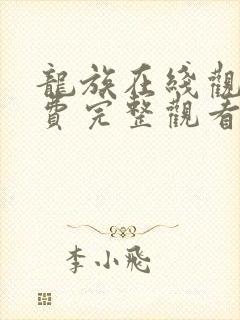 龍族在綫觀
費完整觀看
李小飛